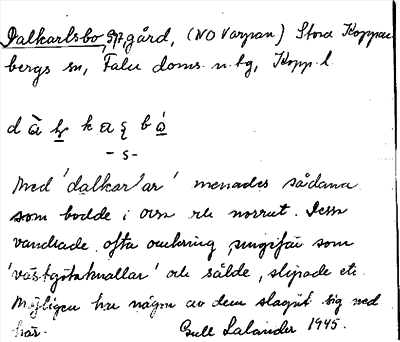 Dalkarlsbo, gård, (NO Varpan) Stora Koppar-
bergs sn, Falu doms. n. tg, Kopp. l.
d à l k a ç b ó
- s -
Med 'dalkar'ar' menades sådana
som bodde i Orsa och norrut. Dessa
vandrade ofta omkring ungefär som
'västgötaknallar' och sålde, slipade etc.
Möjligen har någon av dem slagit sig ned
här. Gull Salander 1945.